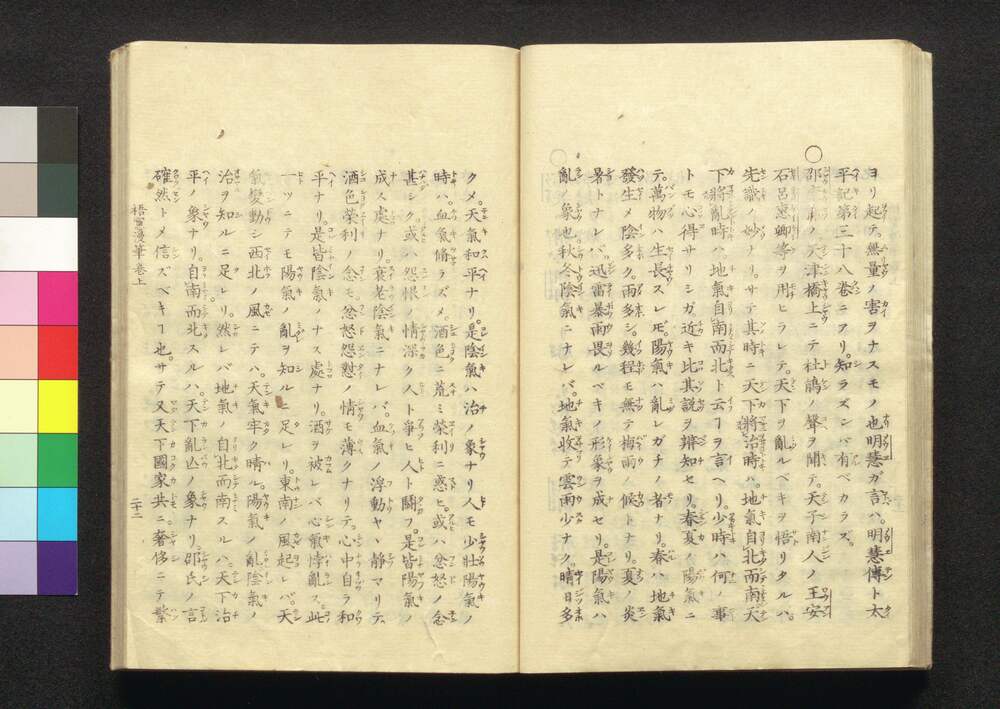 ヨリ起テ。無量ノ害ヲナスモノ也明慧ガ言ハ。明慧傳ト太
平記第三十八巻ニアリ。知ラズンバ有ベカラズ。
○邵康節ノ天津橋上ニテ杜鵑ノ聲ヲ聞テ。天子南人ノ王安
石呂惠卿等ヲ用ヒラレテ。天下ヲ亂ルベキヲ悟リタルハ。
先識ノ妙ナリ。サテ其時ニ天下將治時ハ。地氣自北而南天
下將亂時ハ。地氣自南而北ト云フヿヲ言ヘリ。少時ハ何ノ事
トモ心得サリシガ近キ比其説ヲ辨知セリ。春夏ノ陽氣ニ
テ。萬物ハ生長スレ𪜈。陽氣ハ亂レガチノ者ナリ。春ハ地氣
發生メ陰多ク。雨多シ。幾程モ無テ梅雨ノ候トナリ。夏ノ炎
暑トナレバ。迅雷暴雨畏ルベキノ形象ヲ成セリ。是陽氣ハ
亂ノ象也。秋冬陰氣ニナレバ。地氣收テ雲雨少ナク。晴日多
クメ。天氣和平ナリ。是陰氣ハ治ノ象ナリ人モ少壯陽氣ノ
時ハ。血氣脩ラズメ。酒色ニ荒ミ榮利ニ惑ヒ。或ハ忿怒ノ念
甚シク。或ハ怨恨ノ情深ク人ト爭ヒ人ト鬪フ。是皆陽氣ノ
成ス處ナリ。衰老陰氣ニナレバ。血氣ノ浮動ヤヽ靜マリテ。
酒色榮利ノ念モ。忿怒怨懟ノ情モ薄クナリテ。心中自ラ和
平ナリ。是皆陰氣ノナス處ナリ。酒ヲ被レバ心氣悖亂ス。此
一ツニテモ陽氣ノ亂ヲ知ルニ足レリ。東南ノ風起レバ。天
氣變動シ西北ノ風ニテハ。天氣牢ク晴ル。陽氣ノ亂陰氣ノ
治ヲ知ルニ足レリ。然レバ地氣ノ自北而南スルハ。天下治
平ノ象ナリ。自南而北スルハ。天下亂亡ノ象ナリ。邵氏ノ言
確然トメ信ズベキヿ也。サテ又天下國家共ニ。奢侈ニテ繁
梧窓漫筆巻上
二十二